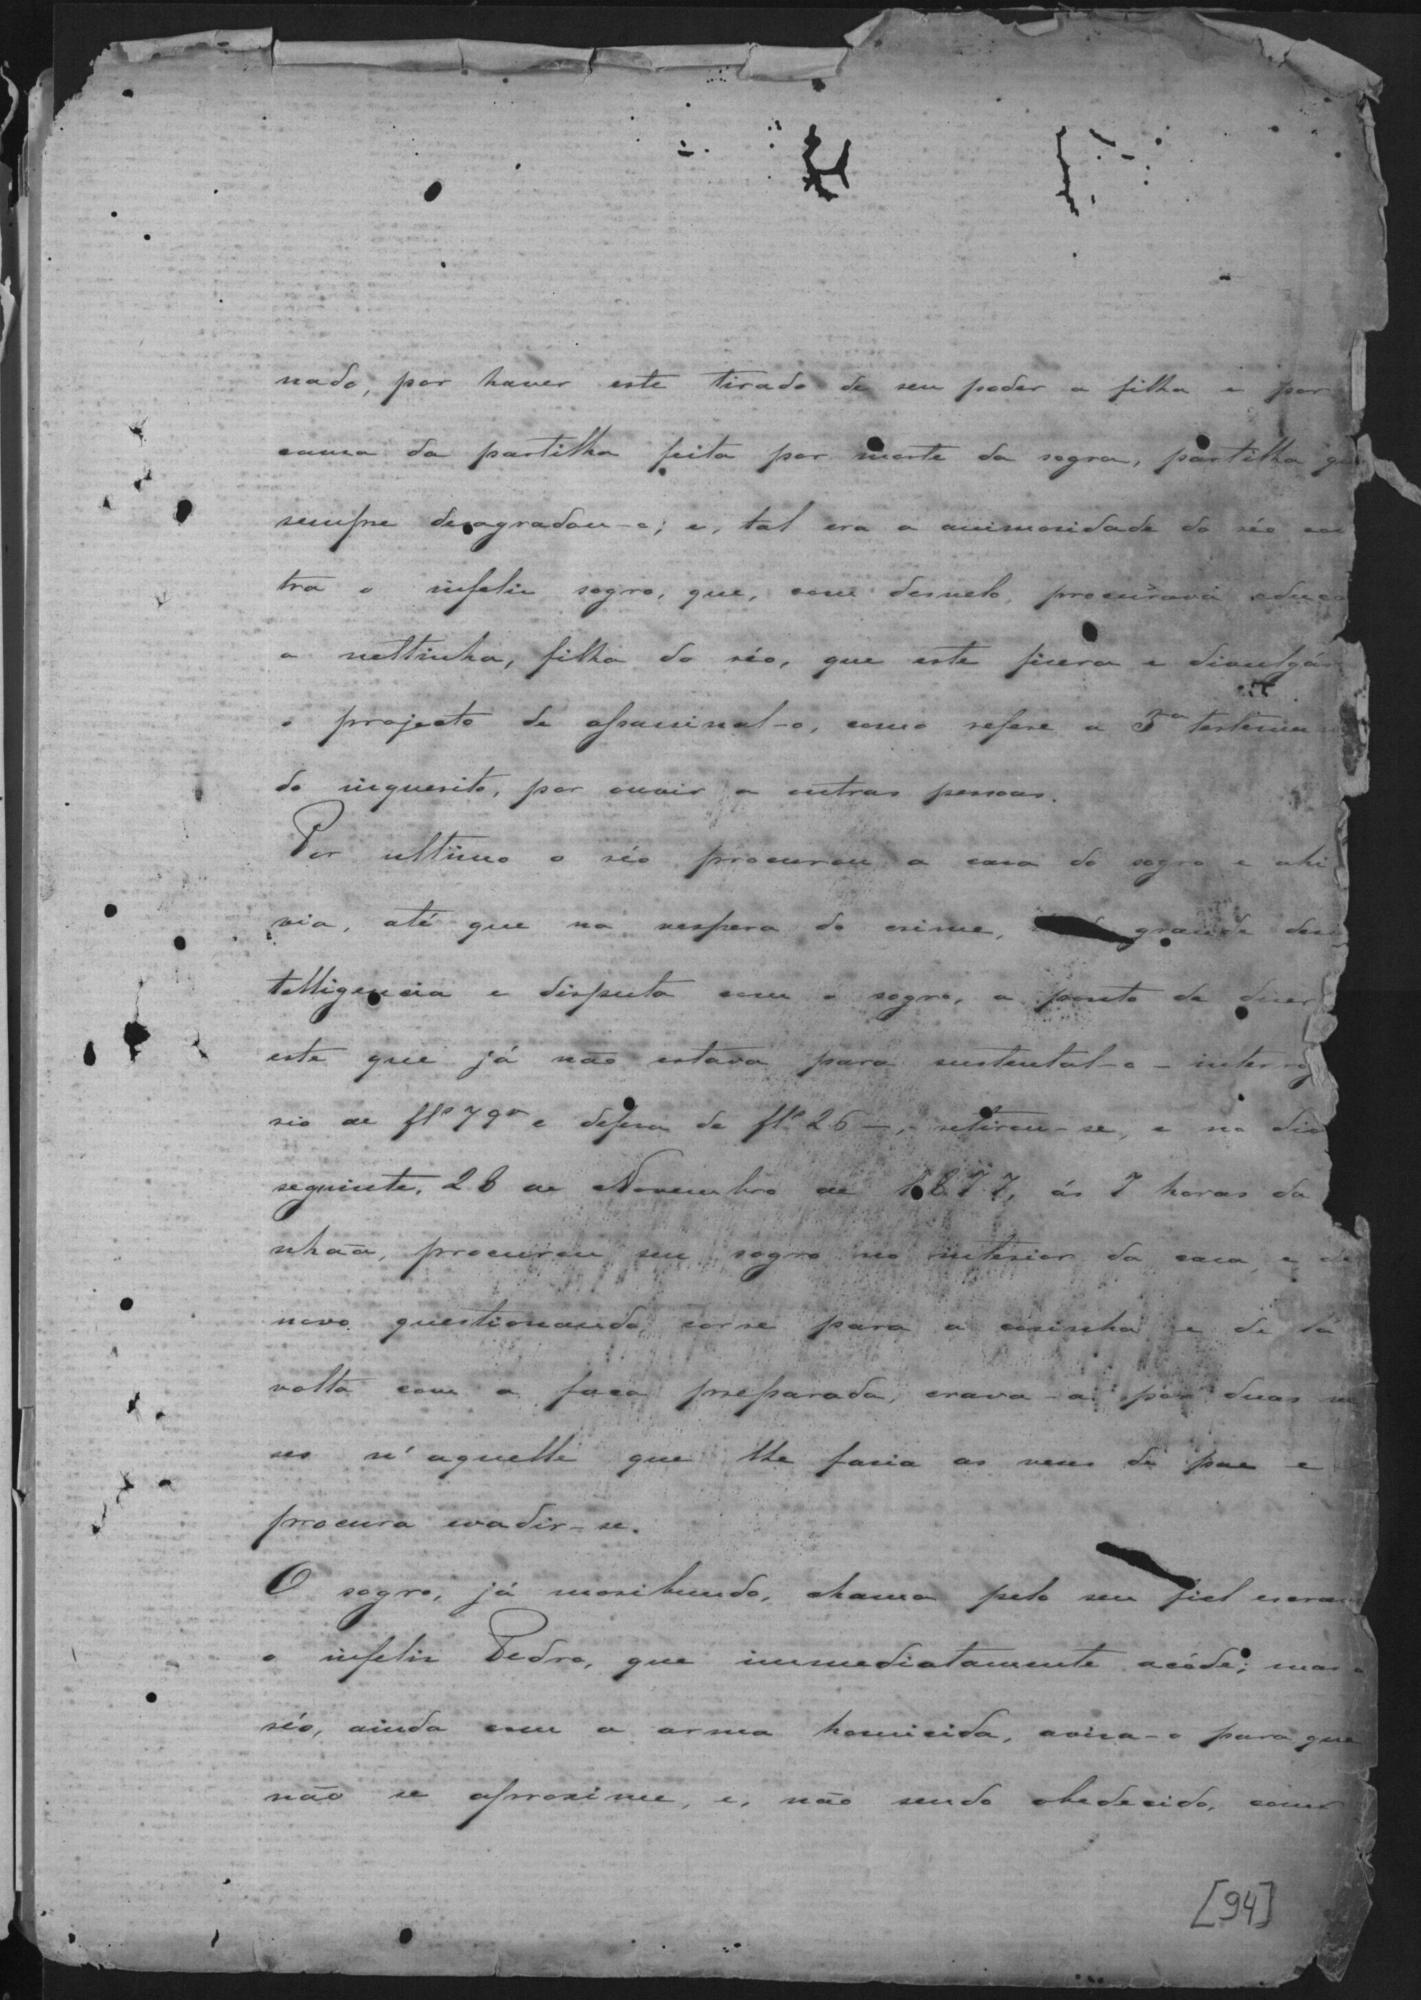 nado, por haver este tirado de seu poder a filha e por
causa da partilha feita por morte da sogra, partilha que
sempre desagradou-o; e, tal era a animosidade do réo con
tra o infeliz sogro, que, com desvelo, procurava educa
a nettinha, filha do réo, que este fizera e divulgár
o projecto de assassinal-o, como refere a 3ª testemun
do inquerito, por ouvir a outras pessoas.
Por ultimo o réo procurou a casa do sogro e ahi
via, até que na vespera do crime, grande desin
telligencia e disputa com o sogro, a ponto de dizer
este que já não estava para sustental-o - interroga
rio de fls 79v e defesa de fls 26 -, retirou-se, e no dia
seguinte, 28 de Novembro de 1877, ás 7 horas da
nhãa, procurou seu sogro no interior da casa, e de
novo questionando, corre para a cosinha e de lá
volta com a faca preparada, crava-a por duas ve
ses n'aquelle que lhe fasia as veses de pae e
procura evadir-se.
O sogro, já moribundo, chama pelo seu fiel escravo
o infeliz Pedro, que immediatamente acóde; mas o
réo, ainda com a arma homicida, avisa-o para que
não se aproxime, e, não sendo obedecido,
[94]